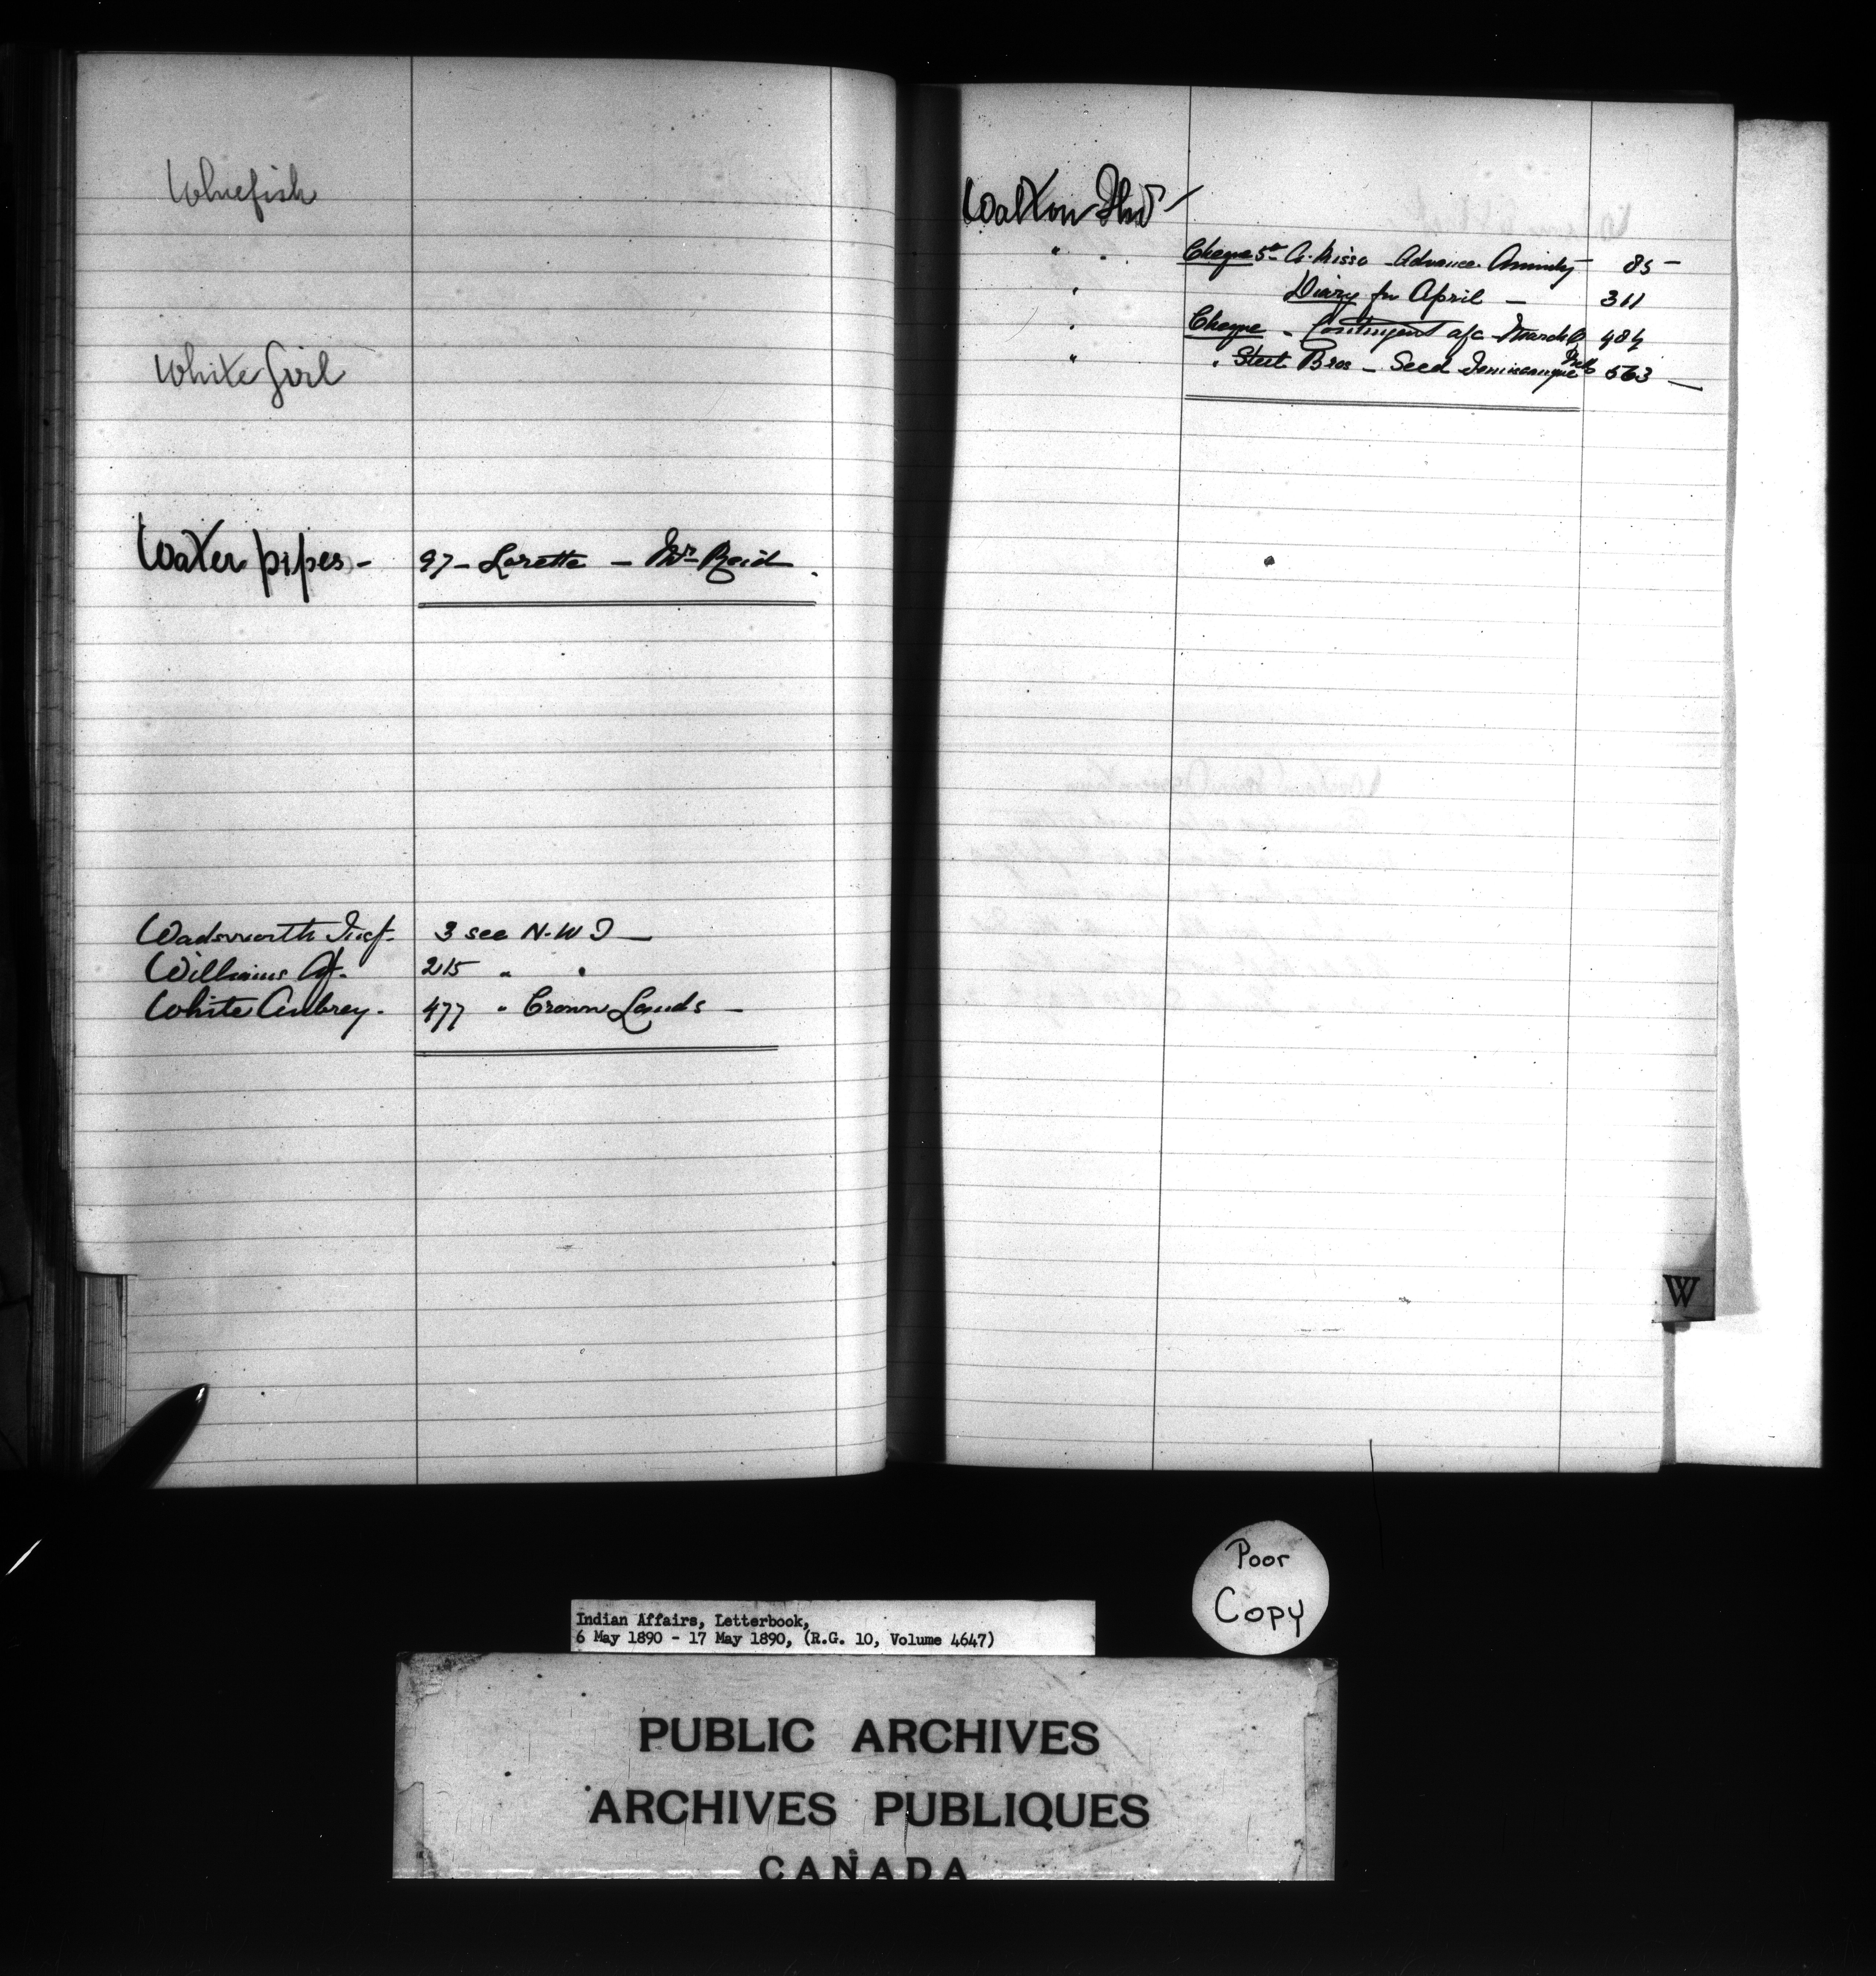 Whitefish
White Girl
Water pipes - 97 - Lorette - Mr Reid
Wadsworth Insp. 3 see N.W.T -
Williams Ag. 215 " "
White Aubrey. 477 " Crown Lands -
Walton Thos
" " Cheque 5 00 A. Advance Annuity 85 -
" Diary for April - 311
" Cheque - Contingent a/c March 484
" " Steel Bros - Seed Temiscamingue 563 -
W
Poor
Copy
Indian Affairs, Letterbook,
6 May 1890 - 17 May 1890, (R.G. 10, Volume 4647)
PUBLIC ARCHIVES
ARCHIVES PUBLIQUES
CANADA